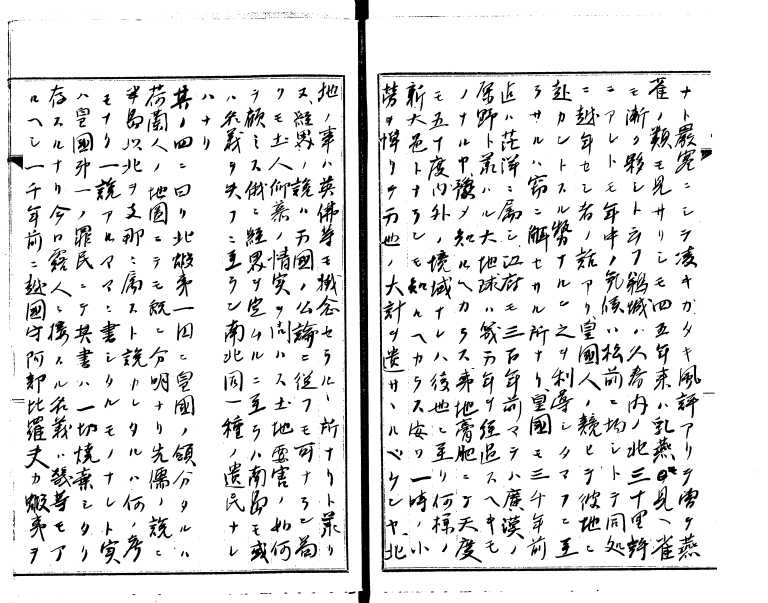 ナト嚴寒ニシテ凌キカタキ風評アリテ雪ヲ燕
雀ノ類モ見サリシモ四五年来ハ乳燕見ヘ雀
モ漸ク夥シト云フ鶴城ノ久春内ノ北三十里許
ニアレトモ年中ノ気候ハ松前ニ均シトテ同処
ニ越年セシ者ノ話アリ皇国人ノ競ヒテ彼地ニ
赴カントスル勢ナルヒ之ヲ利導シタマフニ至
ラサルハ窃ニ解セサル所ナリ皇国モ三千年前
近ハ茫洋ニ属シ江府モ三百年前マテハ廣漠ノ
原野ト承ハル大地球ハ幾万年ヲ経過スヘキモ
ノナルヤ豫メ知ルヘカラス夷地膏肥ニシテ天度
モ五十度内外ノ境域ナレハ後世ニ至リ何様ノ
新大邑トナランモ知ルヘカラス安ソ一時ノ小
労ヲ憚リテ万世ノ大計ヲ遺サヽルベケンヤ北
地ノ事ハ英佛等モ掛念セラルヽ所ナリト承リ
ス経界ノ説ハ万國ノ公論ニ從フモ可ナラン尚
クモ土人仰慕ノ情実ヲ問ハス土地要害ノ如何
ヲ顧ミス俄ニ経界ヲ定ムルニ至ラハ南島モ或
ハ其義ヲ失フニ至ラン南北同一種ノ遺民ナレ
ハナリ
其ノ四ニ曰ク北蝦夷一円ニ皇國ノ領分タルハ
荷蘭人ノ地圖ニテモ既ニ分明ナリ先儒ノ説ニ
半島以北ヲ支那ニ属スト説カレタルハ何ノ考
モナク一説アルマヽニ書シタルモノナレト実
ハ皇國第一ノ罪民ニテ其書ハ一切焼棄シタク
存スルナリ今日露人ニ接スル名義ハ幾等モア
ルヘシ一千年前ニ越國守阿部比羅夫カ蝦夷ヲ